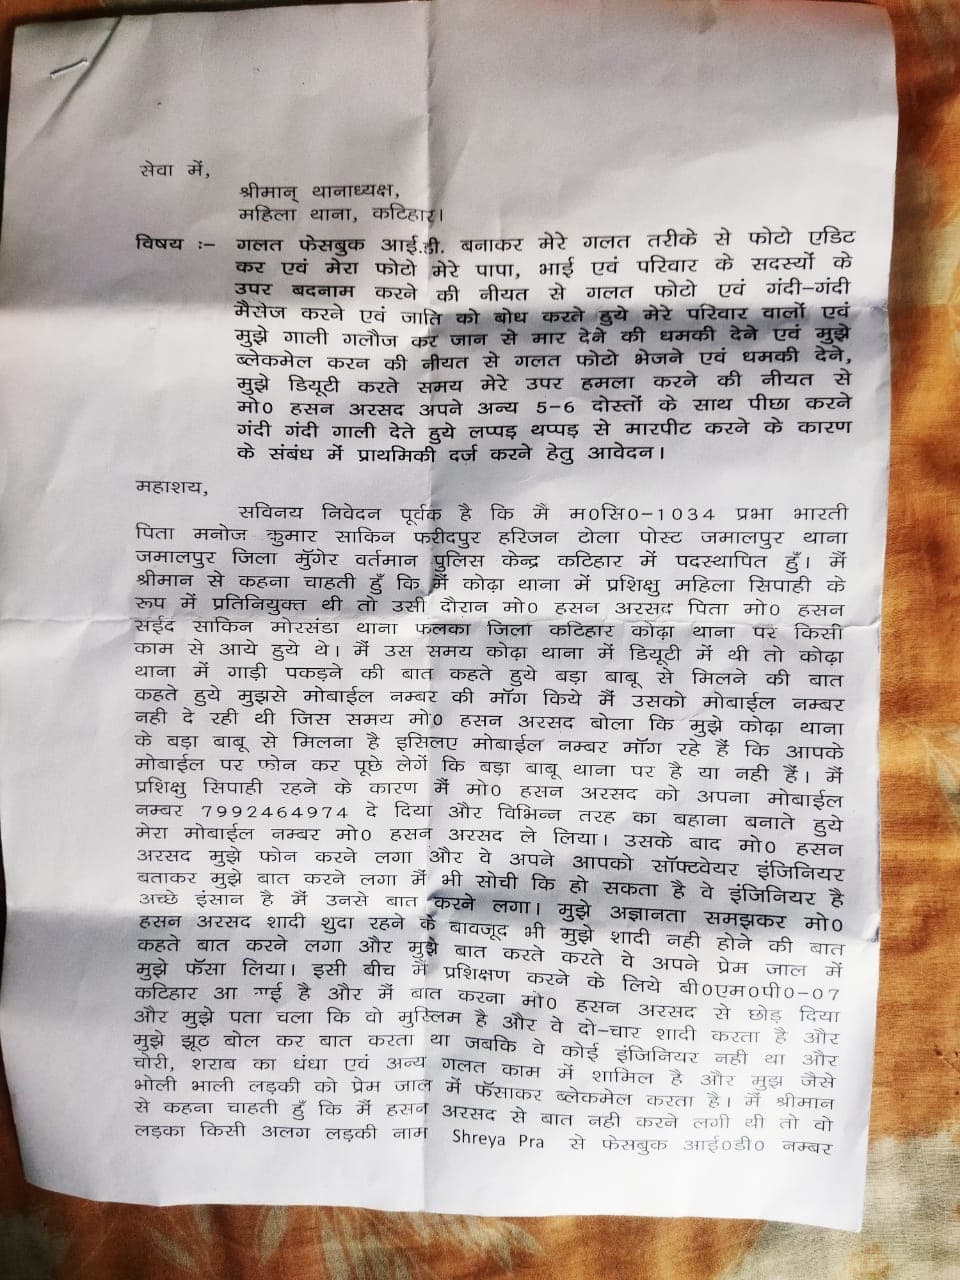 सेवा में,
श्रीमान् थानाध्यक्ष,
महिला थाना, कटिहार।
विषय :– गलत फेसबुक आई.डी. बनाकर मेरे गलत तरीके से फोटो एडिट
कर एवं मेरा फोटो मेरे पापा, भाई एवं परिवार के सदस्यों के
उपर बदनाम करने की नीयत से गलत फोटो एवं गंदी–गंदी
मैसेज करने एवं जाति को बोध करते हुये मेरे परिवार वालों एवं
मुझे गाली गलौज कर जान से मार देने की धमकी देने एवं मुझे
ब्लेकमेल करन की नीयत से गलत फोटो भेजने एवं धमकी देने,
मुझे डियूटी करते समय मेरे उपर हमला करने की नीयत से
मो0 हसन अरसद अपने अन्य 5–6 दोस्तों के साथ पीछा करने
गंदी गंदी गाली देते हुये लप्पड़ थप्पड़ से मारपीट करने के कारण
के संबंध में प्राथमिकी दर्ज करने हेतु आवेदन।
महाशय,
सविनय निवेदन पूर्वक है कि मै म0सि0–1034 प्रभा भारती
पिता मनोज कुमार साकिन फरीदपुर हरिजन टोला पोस्ट जमालपुर थाना
जमालपुर जिला मुॅगेर वर्तमान पुलिस केन्द्र कटिहार में पदस्थापित हुॅ। मैं
श्रीमान से कहना चाहती हुॅ कि मैं कोढ़ा थाना में प्रशिक्षु महिला सिपाही के
रूप में प्रतिनियुक्त थी तो उसी दौरान मो0 हसन अरसद पिता मो0 हसन
सईद साकिन मोरसंडा थाना फलका जिला कटिहार कोढ़ा थाना पर किसी
काम से आये हुये थे। मैं उस समय कोढ़ा थाना में डियूटी में थी तो कोढ़ा
थाना में गाड़ी पकड़ने की बात कहते हुये बड़ा बाबू से मिलने की बात
कहते हुये मुझसे मोबाईल नम्बर की मॉग किये मैं उसको मोबाईल नम्बर
नही दे रही थी जिस समय मो0 हसन अरसद बोला कि मुझे कोढ़ा थाना
के बड़ा बाबू से मिलना है इसिलए मोबाईल नम्बर मॉग रहे हैं कि आपके
मोबाईल पर फोन कर पूछे लेगें कि बड़ा बाबू थाना पर है या नही हैं। मैं
प्रशिक्षु सिपाही रहने के कारण मैं मो0 हसन अरसद को अपना मोबाईल
नम्बर 7992464974 दे दिया और विभिन्न तरह का बहाना बनाते हुये
मेरा मोबाईल नम्बर मो0 हसन अरसद ले लिया। उसके बाद मो0 हसन
अरसद मुझे फोन करने लगा और वे अपने आपको सॉफ्टवेयर इंजिनियर
बताकर मुझे बात करने लगा मैं भी सोची कि हो सकता है वे इंजिनियर है
अच्छे इंसान है मैं उनसे बात करने लगा। मुझे अज्ञानता समझकर मो0
हसन अरसद शादी शुदा रहने के बावजूद भी मुझे शादी नही होने की बात
कहते बात करने लगा और मुझे बात करते करते वे अपने प्रेम जाल में
मुझे फॅसा लिया। इसी बीच मैं प्रशिक्षण करने के लिये बी0एम0पी0–07
कटिहार आ गई है और मैं बात करना मो0 हसन अरसद से छोड़ दिया
और मुझे पता चला कि वो मुस्लिम है और वे दो–चार शादी करता है और
मुझे झूठ बोल कर बात करता था जबकि वे कोई इंजिनियर नही था और
चोरी, शराब का धंधा एवं अन्य गलत काम में शामिल है और मुझ जैसे
भोली भाली लड़की को प्रेम जाल में फॅसाकर ब्लेकमेल करता है। मैं श्रीमान
से कहना चाहती हुॅ कि मैं हसन अरसद से बात नही करने लगी थी तो वो
लड़का किसी अलग लड़की नाम Shreya Pra से फेसबुक आई0डी0 नम्बर